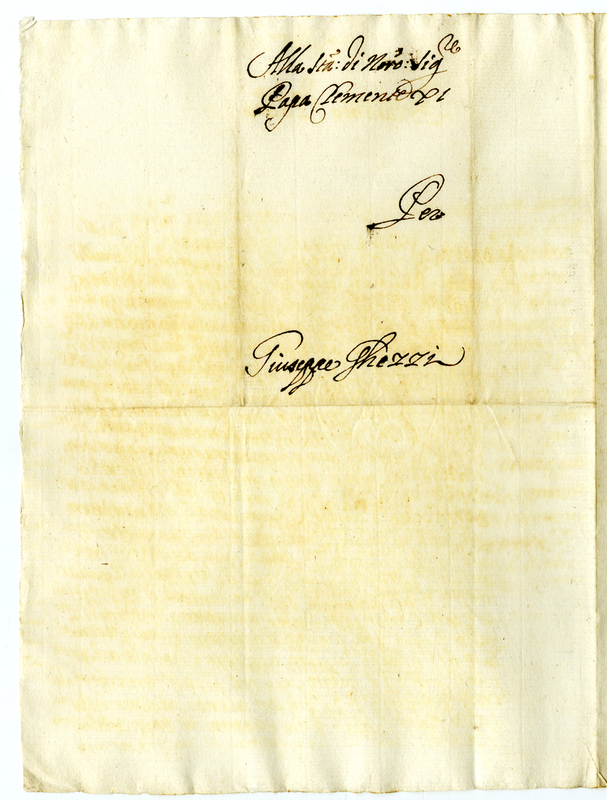 Alla Stà: di Nrõ: Sigre
Papa Clemente XI
Per
Giuseppe Ghezzi